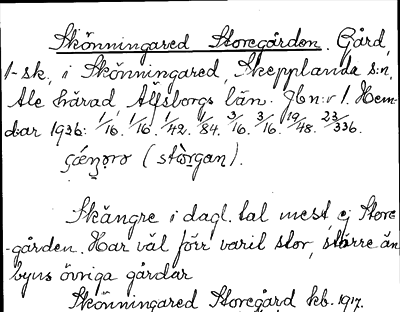 Skönningared Storegården. Gård,
1-sk, i Skönningared, Skepplanda s:n,
Ale härad, Älfsborgs län. Jbn:r 1. Hem-
dar 1936: 1/16. 1/16. 1/42. 1/84. 3/16. 3/16. 19/48. 23/336.
(stòrgan).
Skängre i dagl. tal mest, ej Store
-gården. Har väl förr varit stor, större än
byns övriga gårdar
Skönningared Storegård kb. 1917.